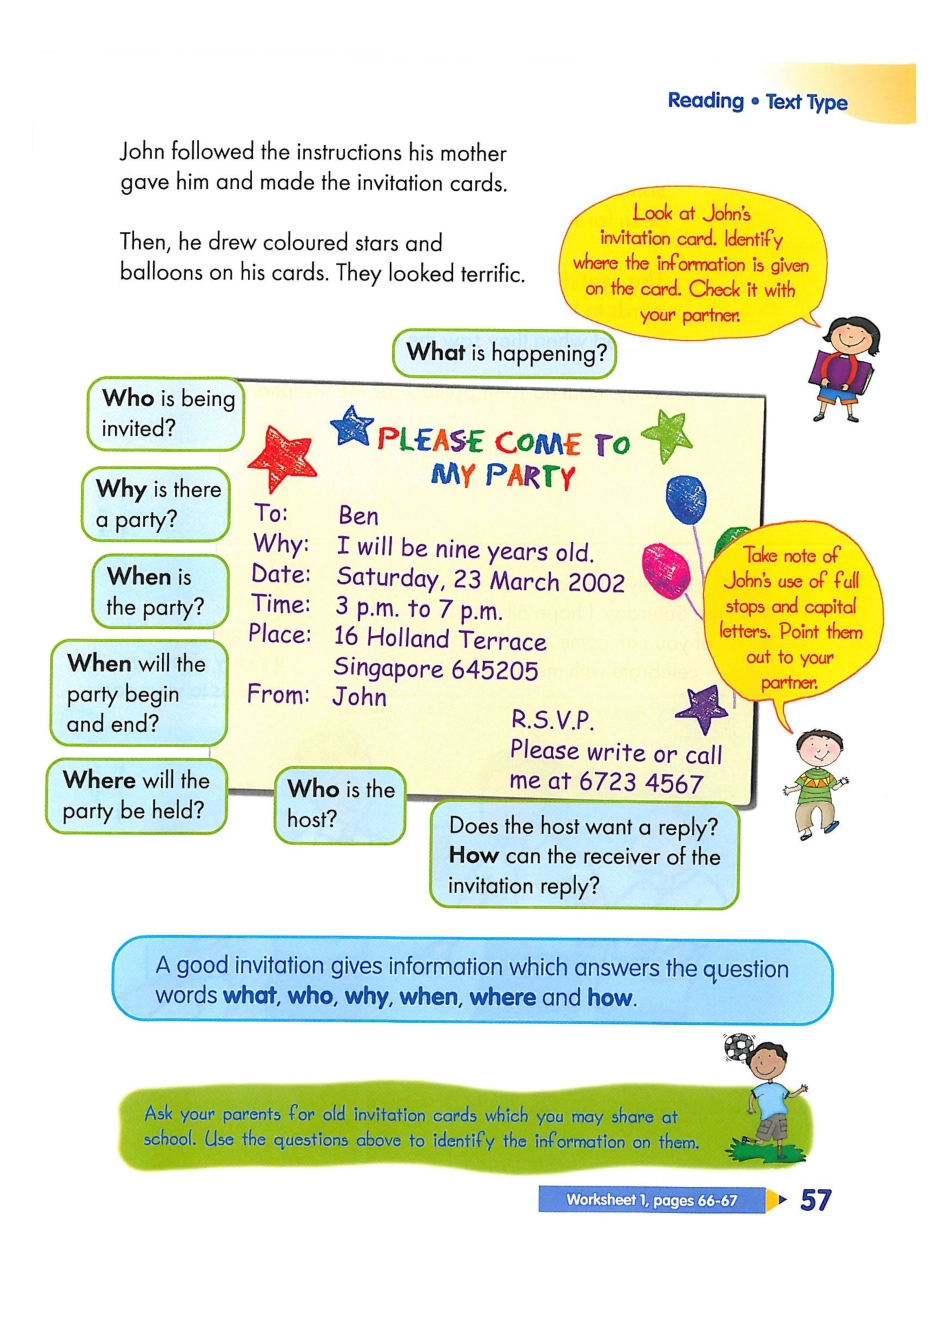 Reading • Text Type
John followed the instructions his mother
gave him and made the invitation cards.
Then, he drew coloured stars and
balloons on his cards. They looked terrific.
Look at John's
invitation card. Identify
where the information is given
on the card. Check it with
your partner.
What is happening?
Who is being
invited?
Why is there
a party?
When is
the party?
When will the
party begin
and end?
Where will the
party be held?
PLEASE COME TO
MY PARTY
To: Ben
Why: I will be nine years old.
Date: Saturday, 23 March 2002
Time: 3 p.m. to 7 p.m.
Place: 16 Holland Terrace
Singapore 645205
From: John
R.S.V.P.
Please write or call
me at 6723 4567
Take note of
John's use of full
stops and capital
letters. Point them
out to your
partner.
Who is the
host?
Does the host want a reply?
How can the receiver of the
invitation reply?
A good invitation gives information which answers the question
words what, who, why, when, where and how.
Ask your parents for old invitation cards which you may share at
school. Use the questions above to identify the information on them.
Worksheet 1, pages 66-67
57